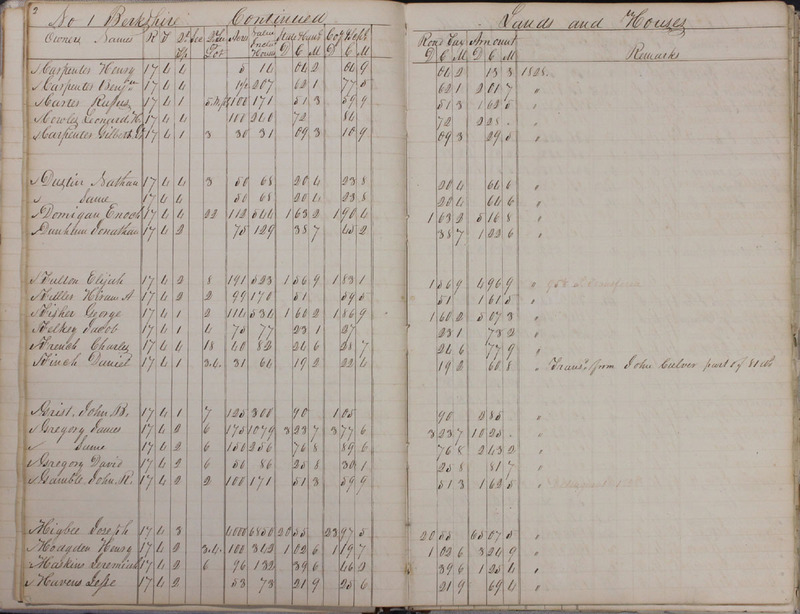 2
No 1 Berkshire Continued Lands and Houses
Owners Names R T Lot Acres Value Remarks
Road Tax Amount
D C M D C M D C M D C M
Carpenter Henry 17 4 4 5 16 04 2 04 9 04 2 13 3 1828.
Carter Rufus 17 4 1 100 171 51 3 59 9 51 3 162 5 "
17 4 4 100 240 72 84 72 228 - "
Carpenter Gilbert 17 4 1 3 30 31 09 3 10 9 09 3 29 5 "
Dustin Nathan 17 4 4 3 50 68 20 4 23 8 20 4 64 6 "
" Same 17 4 4 50 68 20 4 23 8 20 4 64 6 "
Domigan Enoch 17 4 4 22 112 544 1 63 2 1 90 4 1 63 2 5 16 8 "
Dunham Jonathan 17 4 2 75 129 38 7 45 2 38 7 1 22 6 "
Fulton Elijah 17 4 2 8 191 523 1 56 9 1 83 1 1 56 9 4 96 9 "
Fuller Hiram A. 17 4 2 2 99 170 51 59 5 51 1 61 5 "
Fisher George 17 4 1 2 114 534 1 60 2 1 86 9 1 60 2 5 07 3 "
Felkey Jacob 17 4 1 4 75 77 23 1 27 23 1 73 2 "
French Charles 17 4 4 18 40 82 24 6 28 7 24 6 77 9 "
Finch Daniel 17 4 1 3.4. 31 64 19 2 22 4 19 2 60 8 " Trans. from John Culver part of 81 as
Grist John B. 17 4 1 7 125 300 90 1 05 90 2 85 "
Gregory James 17 4 2 6 175 1079 3 23 7 3 77 6 3 23 7 10 25 - "
" Same 17 4 2 6 150 256 76 8 89 6 76 8 2 43 2 "
Gregory David 17 4 2 6 50 86 25 8 30 1 25 8 81 7 "
Gamble John R. 17 4 2 2 100 171 51 3 59 9 51 3 1 62 5 "
Higbee Joseph 17 4 3 4000 6850 20 55 23 97 5 20 55 65 07 5 "
Hodgden Henry 17 4 2 3.4. 100 342 1 02 6 1 19 7 1 02 6 3 24 9 "
Haskins Jeremiah 17 4 2 6 96 132 39 6 46 2 39 6 1 25 4 "
Havens Jesse 17 4 2 53 73 21 9 25 6 21 9 69 4 "